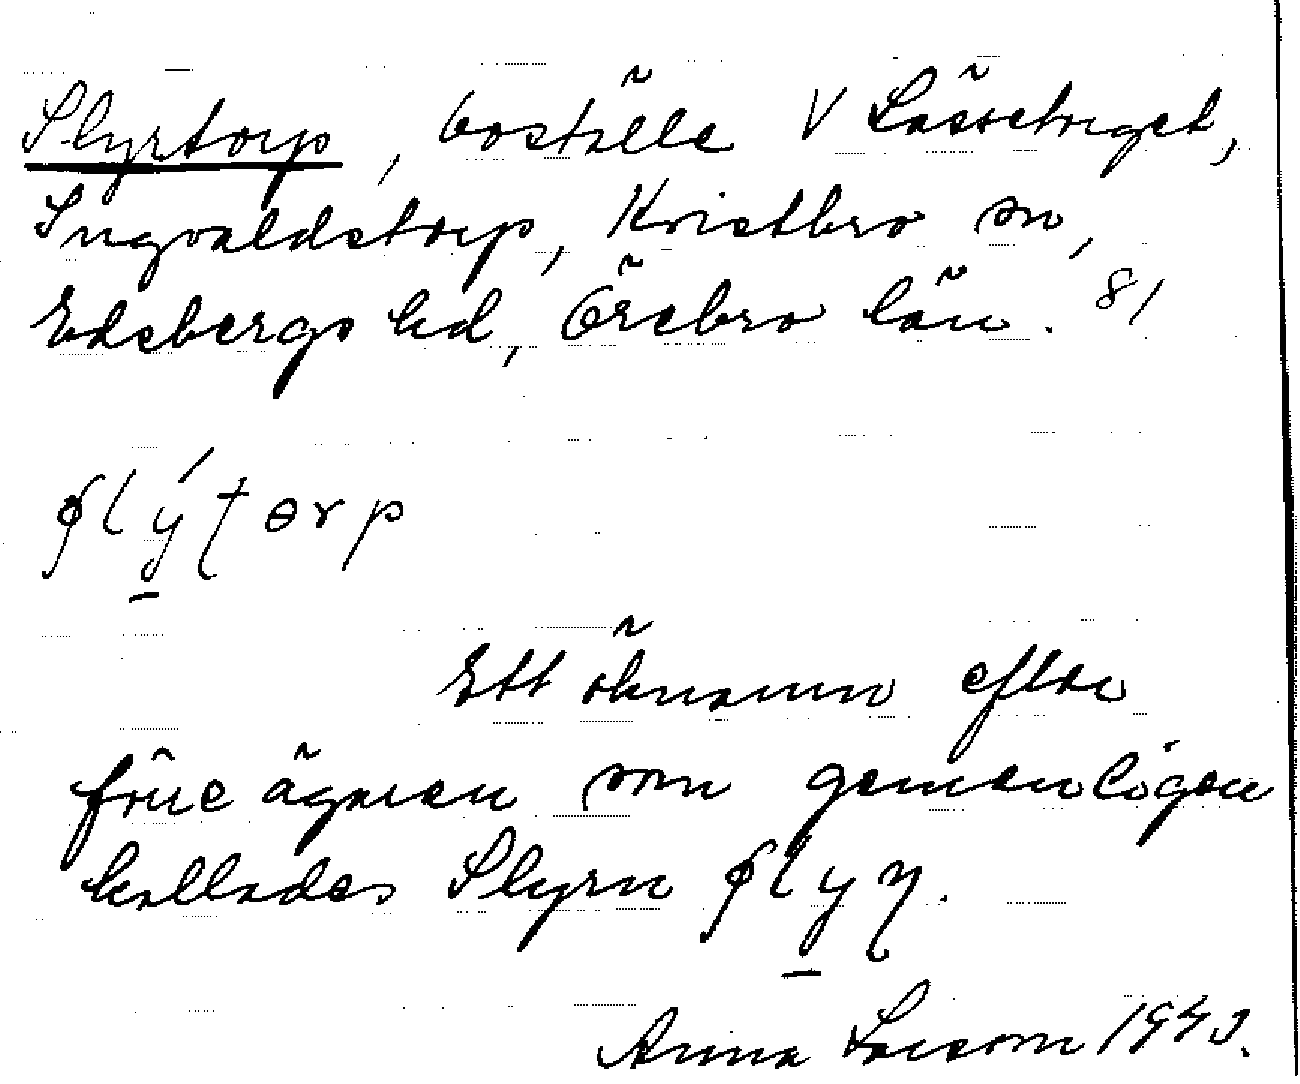 Slyrtorp, boställe V Lässetorget,
Ingvaldstorp, Kvistbro sn,
Edsbergs hd, Örebro län. 81
ʂlýʈɵrp
Ett öknamn efter
förre ägaren som gemenligen
kallades Slyrn ʂlyɳ.
Anna Larsson 1943.